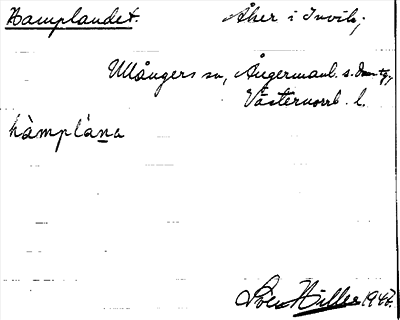 Hamplandet. Åker i Invik,
Ullångers sn, Ångermanl. s. domsg,
Västernorrl. l.
hàmplána
Sven Hiller 1947.